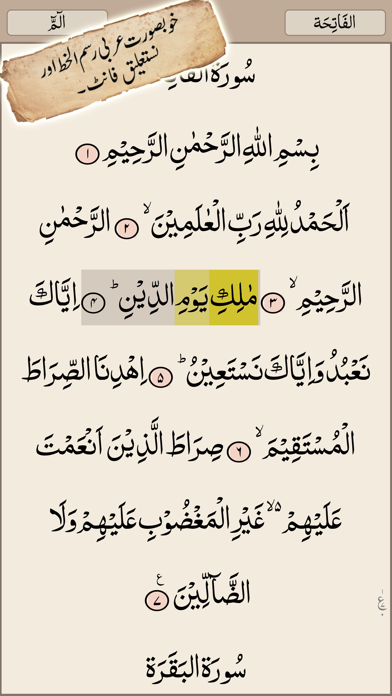 الٓمّٓ
الفَاتِحَة
خوبصورت عربی رسم الخط اور
نستعلیق فانٹ۔
سُورَةُ الفَا
بِسْمِ اللهِ الرَّحْمٰنِ الرَّحِيْمِ ۱
اَلْحَمْدُ لِلّٰهِ رَبِّ الْعٰلَمِيْنَ ۙ ۲ الرَّحْمٰنِ
الرَّحِيْمِ ۙ ۳ مٰلِكِ يَوْمِ الدِّيْنِ ؕ ۴ اِيَّاكَ
نَعْبُدُ وَاِيَّاكَ نَسْتَعِيْنُ ؕ ۵ اِهْدِنَا الصِّرَاطَ
الْمُسْتَقِيْمَ ۙ ۶ صِرَاطَ الَّذِيْنَ اَنْعَمْتَ
عَلَيْهِمْ ۙ۵ غَيْرِ الْمَغْضُوْبِ عَلَيْهِمْ وَلَا
الضَّآلِّيْنَ ۷ ع
سُورَةُ البَقَرَة